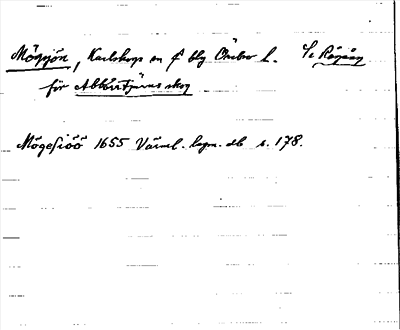 Mögsjön, Karlskoga sn o blg Örebro l. Se Rågång
för Abborrtjärns skog
Mögesiöö 1655 Värml. lagm. db s. 178.